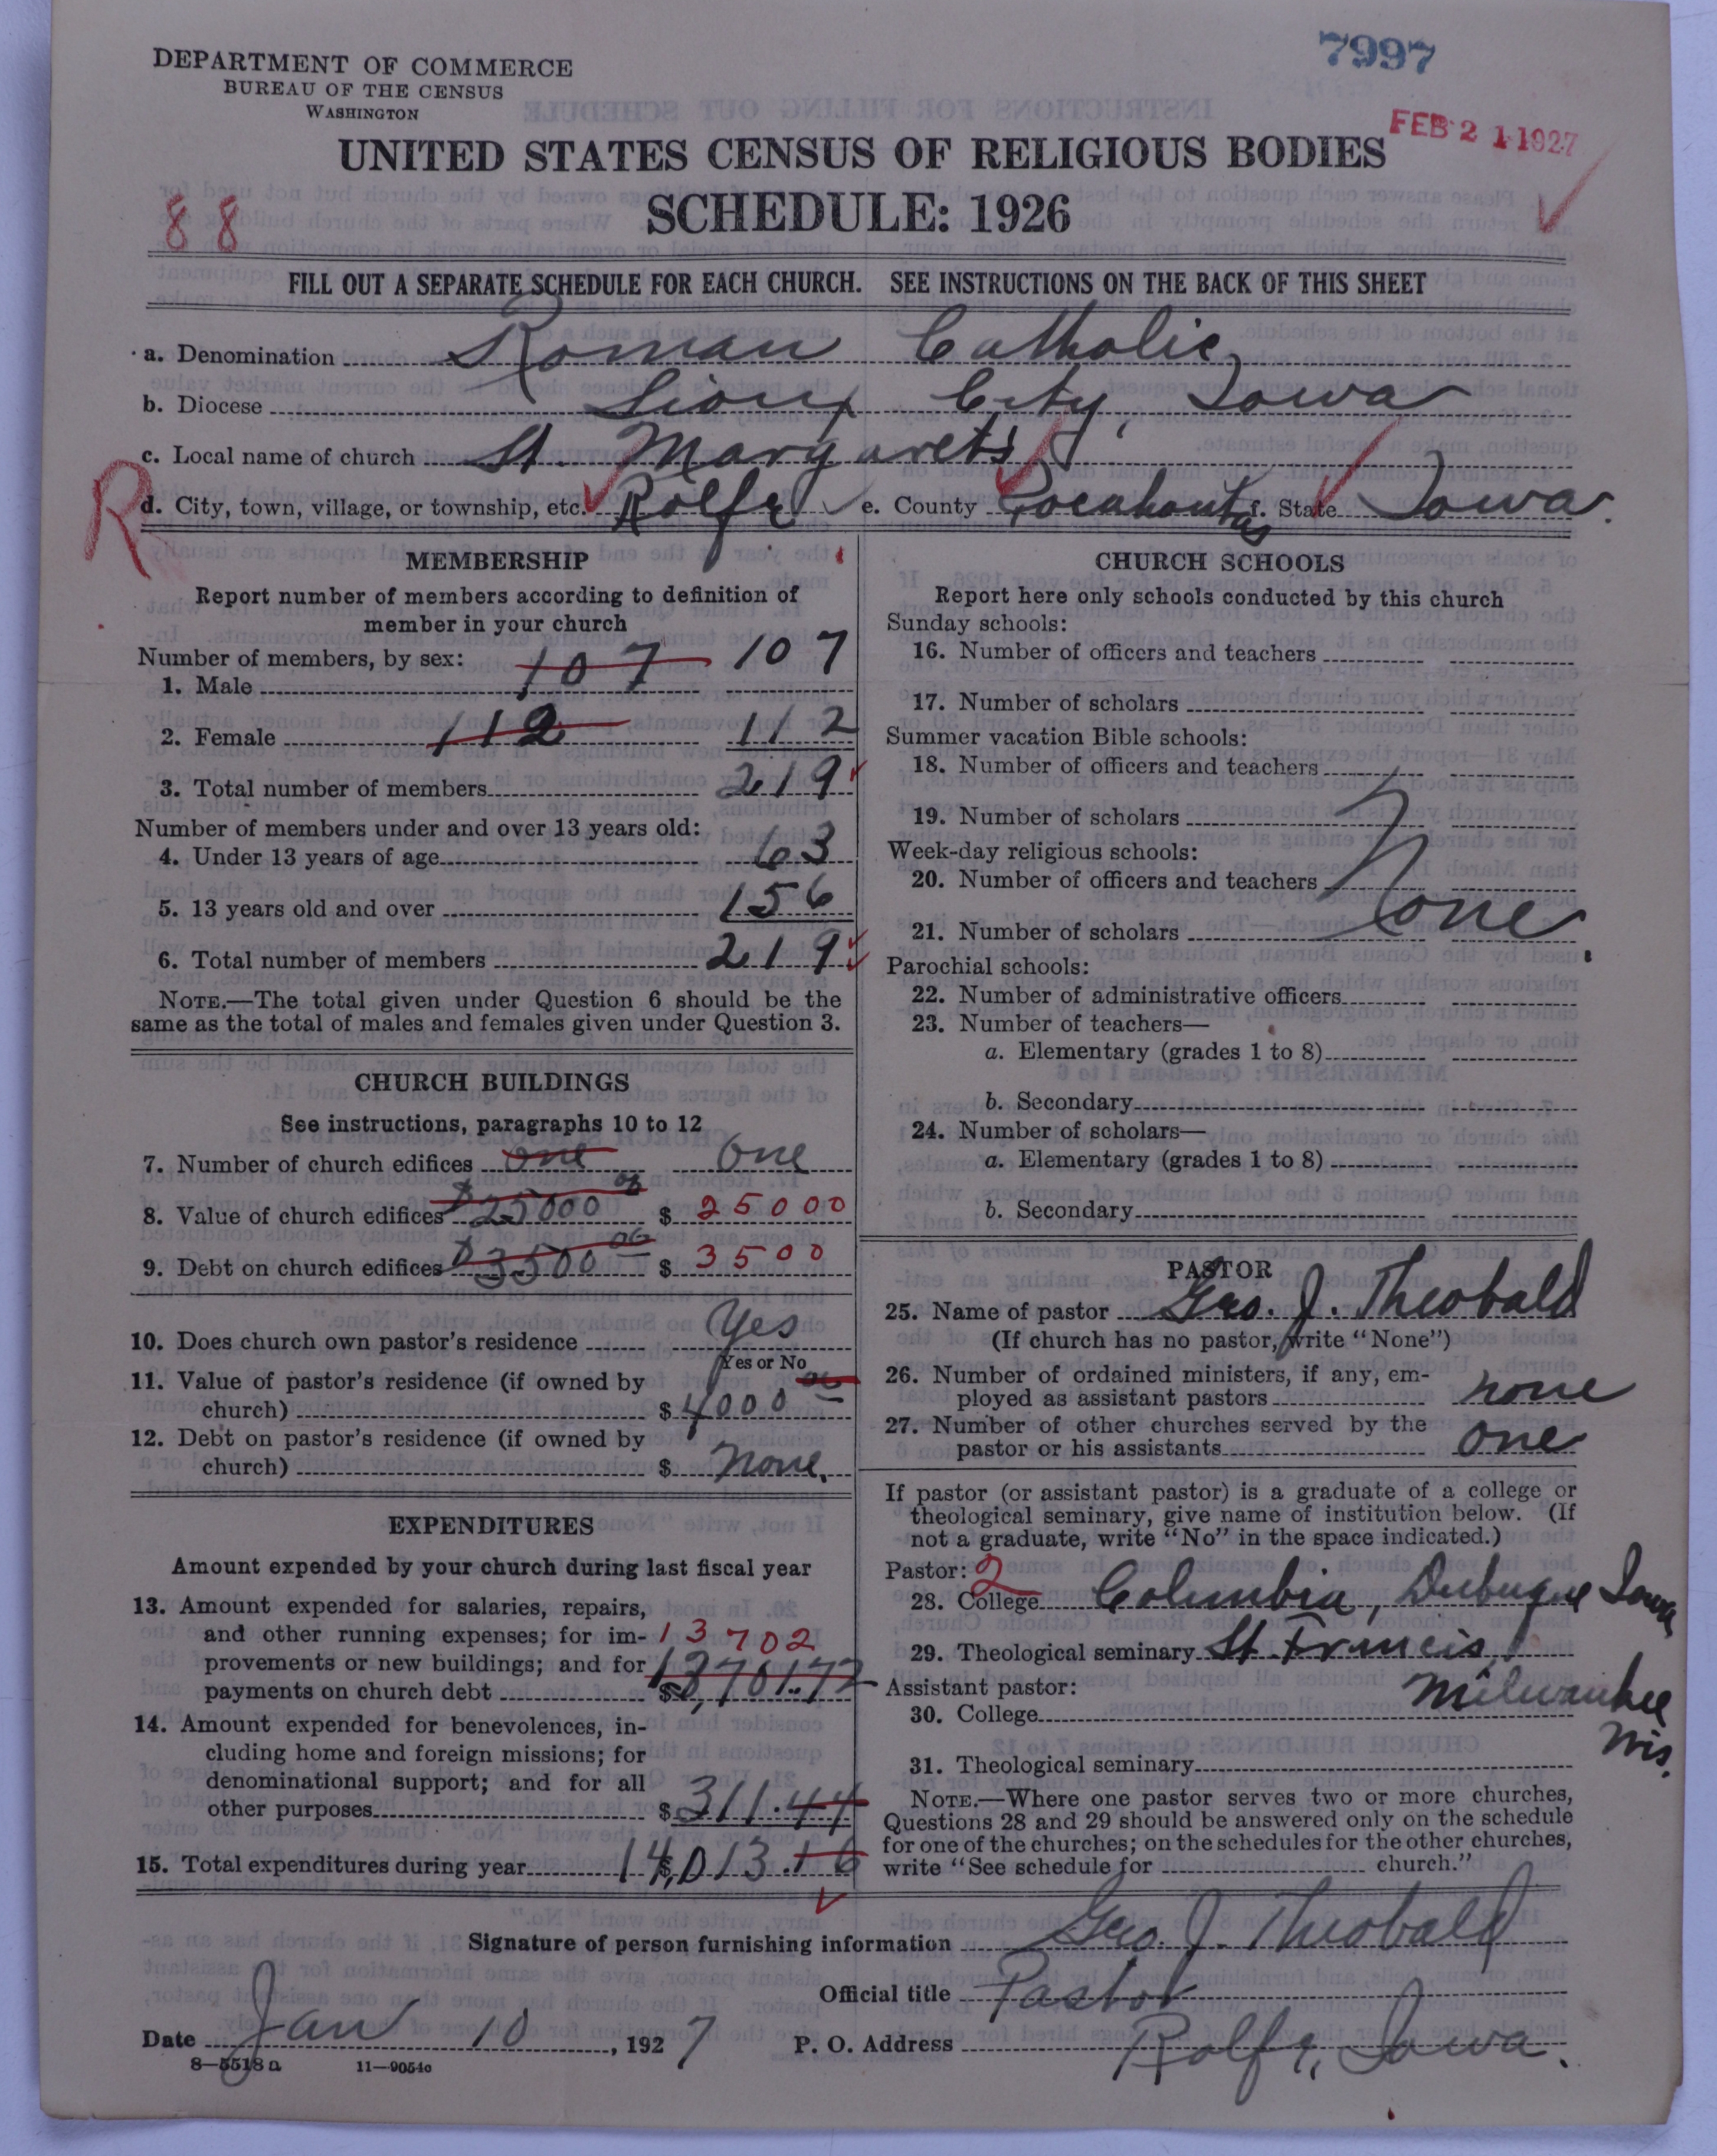 DEPARTMENT OF COMMERCE
BUREAU OF THE CENSUS
WASHINGTON
7997
FEB 21 1927
UNITED STATES CENSUS OF RELIGIOUS BODIES
SCHEDULE: 1926
88
FILL OUT A SEPARATE SCHEDULE FOR EACH CHURCH. SEE INSTRUCTIONS ON THE BACK OF THIS SHEET
a. Denomination Roman Catholic
b. Diocese Sioux City, Iowa
c. Local name of church St. Margarets
R
d. City, town, village, or township, etc. Rolfe e. County Pocahontas f. State Iowa.
MEMBERSHIP
Report number of members according to definition of
member in your church
Number of members, by sex:
1. Male 107 107
2. Female 112 112
3. Total number of members 219
Number of members under and over 13 years old:
4. Under 13 years of age 63
5. 13 years old and over 156
6. Total number of members 219
NOTE.—The total given under Question 6 should be the
same as the total of males and females given under Question 3.
CHURCH BUILDINGS
See instructions, paragraphs 10 to 12
7. Number of church edifices one One
8. Value of church edifices $25000 00 $ 25000
9. Debt on church edifices $3500 00 $ 3500
10. Does church own pastor's residence Yes
Yes or No
11. Value of pastor's residence (if owned by
church) $ 4000 00
12. Debt on pastor's residence (if owned by
church) $ None.
EXPENDITURES
Amount expended by your church during last fiscal year
13. Amount expended for salaries, repairs,
and other running expenses; for im- 13702
provements or new buildings; and for
payments on church debt $ 13,701.72
14. Amount expended for benevolences, in-
cluding home and foreign missions; for
denominational support; and for all
other purposes $ 311.44
15. Total expenditures during year $ 14,013.16
CHURCH SCHOOLS
Report here only schools conducted by this church
Sunday schools:
16. Number of officers and teachers
17. Number of scholars
Summer vacation Bible schools:
18. Number of officers and teachers
19. Number of scholars
Week-day religious schools:
20. Number of officers and teachers
None.
21. Number of scholars
Parochial schools:
22. Number of administrative officers
23. Number of teachers—
a. Elementary (grades 1 to 8)
b. Secondary
24. Number of scholars—
a. Elementary (grades 1 to 8)
b. Secondary
PASTOR
25. Name of pastor Geo. J. Theobald
(If church has no pastor, write "None")
26. Number of ordained ministers, if any, em-
ployed as assistant pastors none
27. Number of other churches served by the
pastor or his assistants one
If pastor (or assistant pastor) is a graduate of a college or
theological seminary, give name of institution below. (If
not a graduate, write "No" in the space indicated.)
Pastor: 2
28. College Columbia, Dubuque Iowa
29. Theological seminary St. Francis,
Milwaukee
Wis.
Assistant pastor:
30. College
31. Theological seminary
NOTE.—Where one pastor serves two or more churches,
Questions 28 and 29 should be answered only on the schedule
for one of the churches; on the schedules for the other churches,
write "See schedule for church."
Signature of person furnishing information Geo. J. Theobald
Official title Pastor
Date Jan 10, 1927 P. O. Address Rolfe, Iowa.
8—5518a 11—9051c